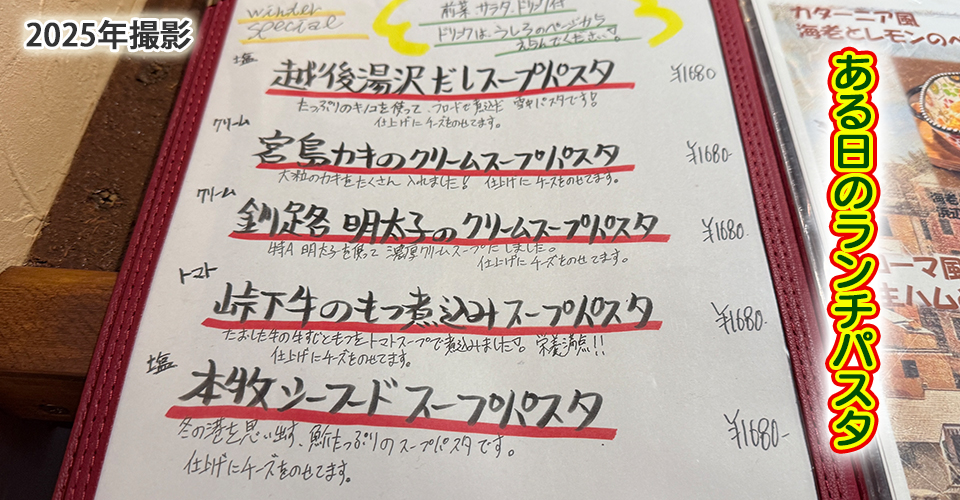 2025年撮影
winter
special
前菜 サラダ ドリンク付
ドリンクは、うしろのページから
えらんでください。
塩
越後湯沢だしスープパスタ ¥1680
たっぷりのキノコを使って、ブロードで煮込だ 雪中パスタです!
仕上げにチーズをのせてます。
クリーム
宮島カキのクリームスープパスタ ¥1680-
大粒のカキをたくさん入れました! 仕上げにチーズをのせてます。
クリーム
釧路 明太子のクリームスープパスタ ¥1680-
特A 明太子を使って 濃厚クリームスープにしました。
仕上げにチーズをのせてます。
トマト
峠下牛のもつ煮込みスープパスタ ¥1680-
牛の牛すじともつをトマトスープで煮込みました。 栄養満点!!
仕上げにチーズをのせてます。
塩
本牧シーフードスープパスタ ¥1680-
冬の港を思い出す、魚介たっぷりのスープパスタです。
仕上げにチーズをのせてます。
カターニア風
海老とレモンのペ
ローマ風
生ハム
ある日のランチパスタ